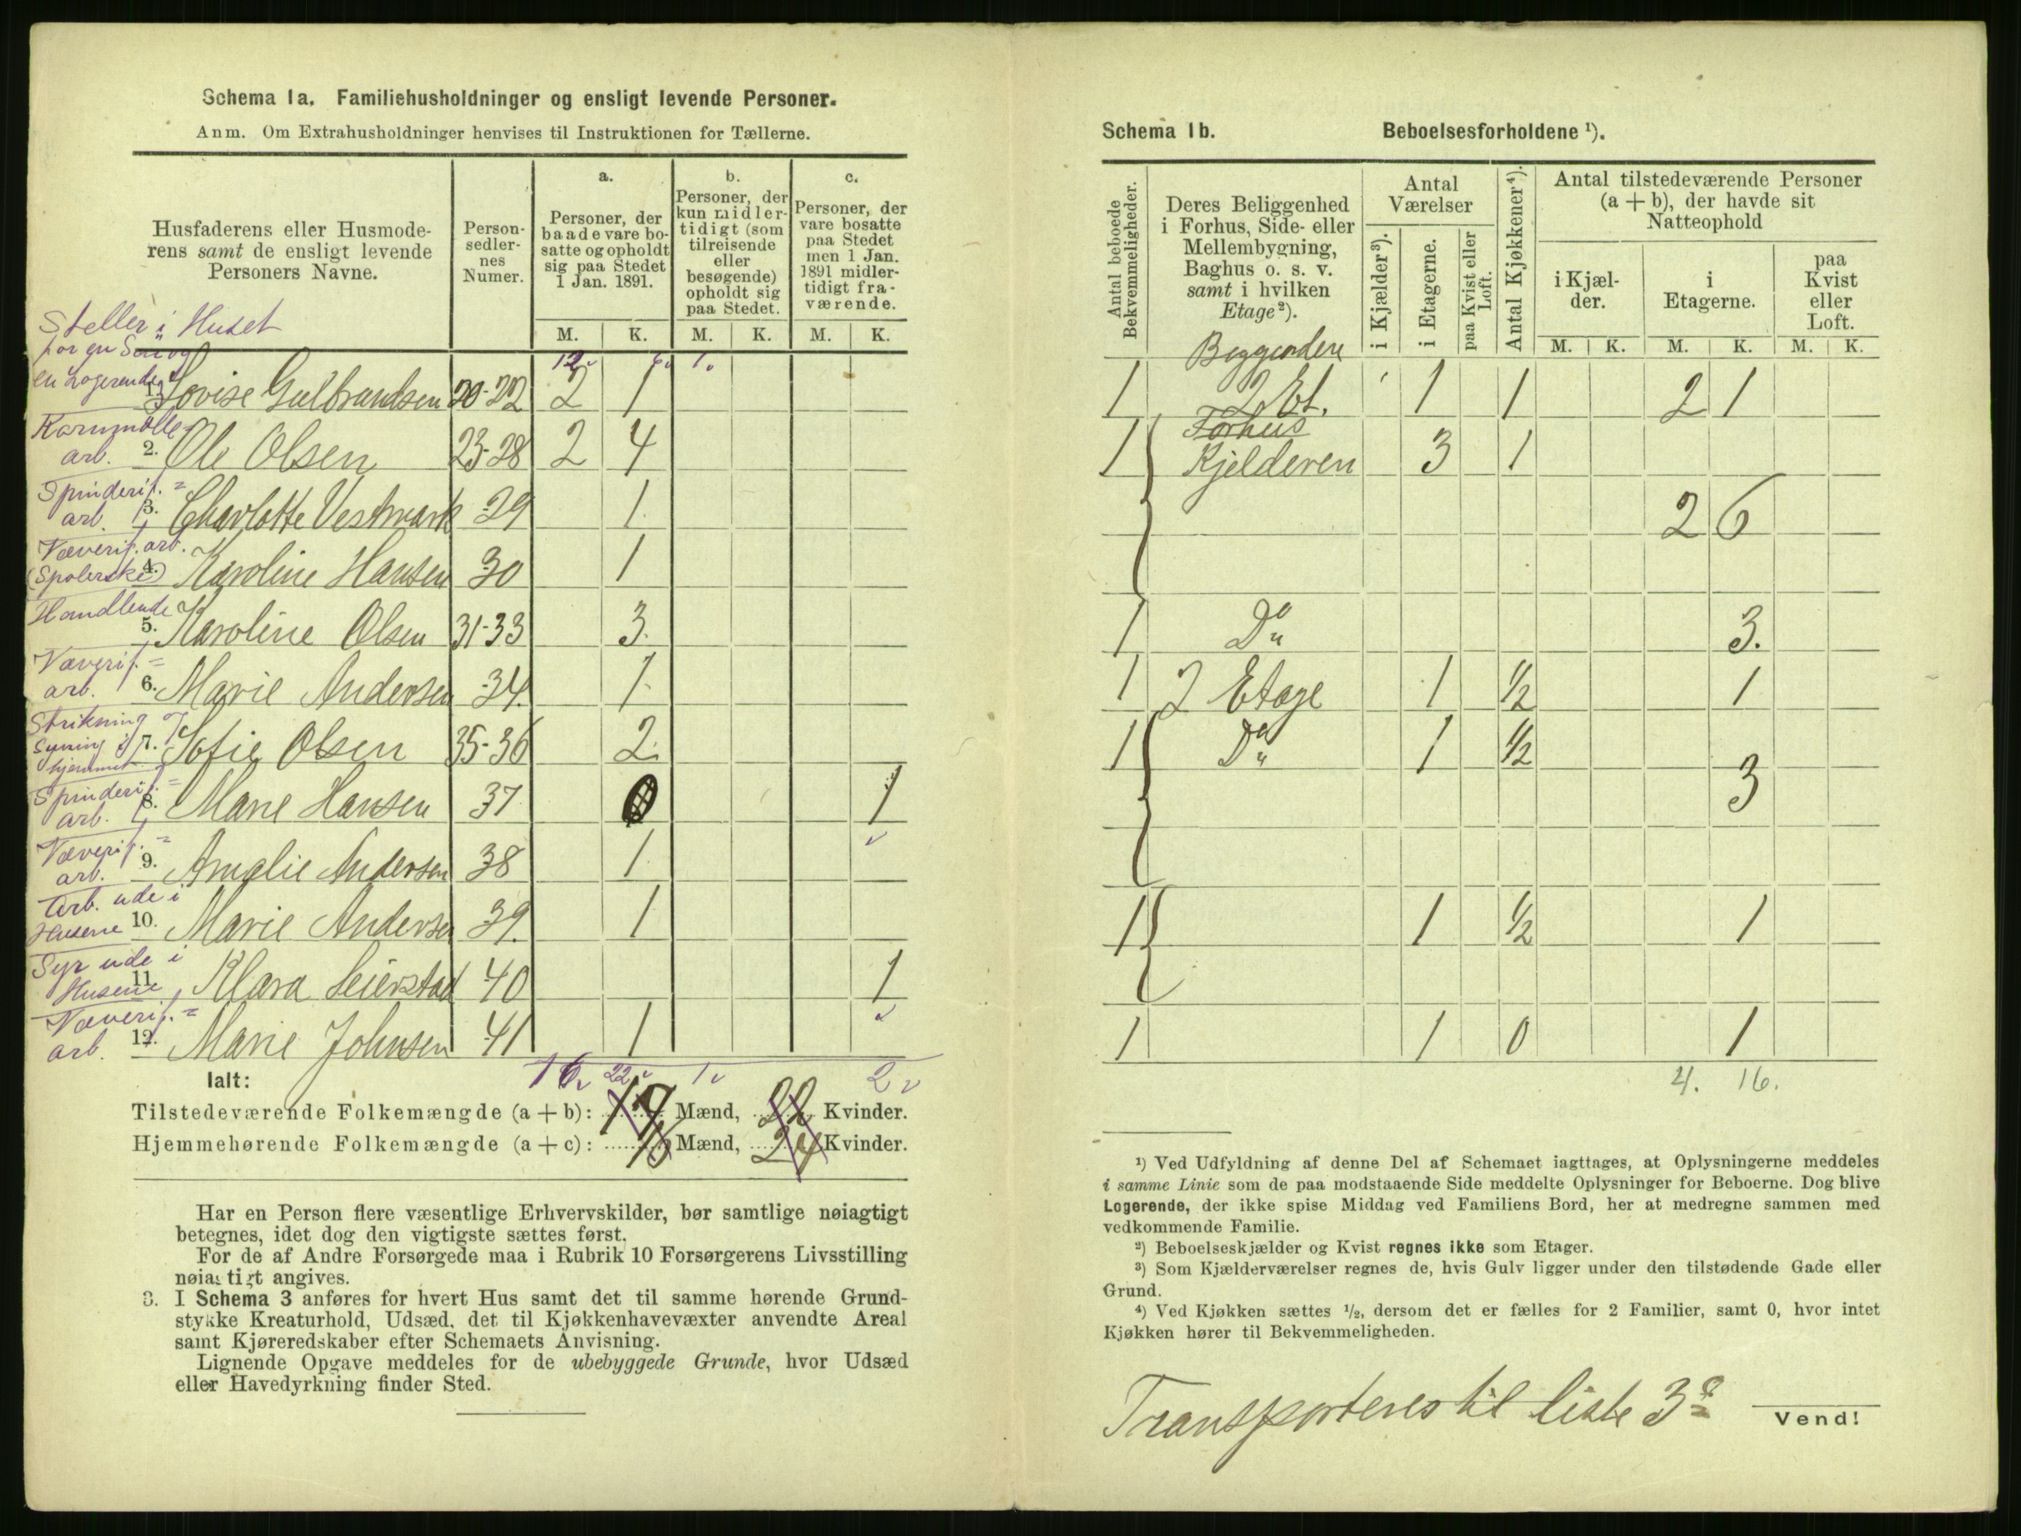 Schema 1a. Familiehusholdninger og ensligt levende Personer.
Anm. Om Extrahusholdninger henvises til Instruktionen for Tællerne.
Husfaderens eller Husmode-
rens samt de ensligt levende
Personers Navne.
Person-
sedler-
nes
Numer.
a.
Personer, der
baade vare bo-
satte og opholdt
sig paa Stedet
1 Jan. 1891.
b.
Personer, der
kun midler-
tidigt (som
tilreisende
eller
besøgende)
opholdt sig
paa Stedet.
c.
Personer, der
vare bosatte
paa Stedet
men 1 Jan.
1891 midler-
tidigt fra-
værende.
M. K. M. K. M. K.
12 6 1
Steller i Huset
for en Søn og
en Logerende
1. Lovise Gulbrandsen 20-22 2 1
Kornmølle
arb. 2. Ole Olsen 23-28 2 4
Spinderif. =
arb. 3. Charlotte Vestmark 29 1
Væverif. arb.
(Spolerske) 4. Karoline Hansen 30 1
Handlende
5. Karoline Olsen 31-33 3.
Væverif. =
arb. 6. Marie Andersen 34. 1
Strikning og
Syning i
hjemmet 7. Sofie Olsen 35-36 2
Spinderif. =
arb. 8. Marie Hansen 37 1
Væverif. =
arb. 9. Amalie Andersen 38 1
Arb. ude i
Husene 10. Marie Andersen 39. 1
Syr ude i
Husene 11. Klara Seierstad 40 1
Væverif. =
arb. 12. Marie Johnsen 41 1
Ialt: 16 22 1 2
Tilstedeværende Folkemængde (a+b): 17 Mænd, 22 Kvinder.
Hjemmehørende Folkemængde (a+c): 16 Mænd, 24 Kvinder.
Har en Person flere væsentlige Erhvervskilder, bør samtlige nøiagtigt
betegnes, idet dog den vigtigste sættes først.
For de af Andre Forsørgede maa i Rubrik 10 Forsørgerens Livsstilling
nøiagtigt angives.
3. I Schema 3 anføres for hvert Hus samt det til samme hørende Grund-
stykke Kreaturhold, Udsæd, det til Kjøkkenhavevæxter anvendte Areal
samt Kjøreredskaber efter Schemaets Anvisning.
Lignende Opgave meddeles for de ubebyggede Grunde, hvor Udsæd
eller Havedyrkning finder Sted.
Schema 1b. Beboelsesforholdene ¹).
Antal beboede
Bekvemmeligheder.
Deres Beliggenhed
i Forhus, Side- eller
Mellembygning,
Baghus o. s. v.
samt i hvilken
Etage²).
Antal
Værelser
i Kjælder³).
i Etagerne.
paa Kvist eller
Loft.
Antal Kjøkkener⁴).
Antal tilstedeværende Personer
(a + b), der havde sit
Natteophold
i Kjæl-
der.
i
Etagerne.
paa
Kvist
eller
Loft.
M. K. M. K. M. K.
1 2 Et. 1 1 2 1
Forhus
1 Kjelderen 3 1
2 6
1 Do 3.
1 2 Etage 1 1/2 1
1 Do 1 1/2
3
1 1 1/2 1
1 1 0 1
4. 16.
¹) Ved Udfyldning af denne Del af Schemaet iagttages, at Oplysningerne meddeles
i samme Linie som de paa modstaaende Side meddelte Oplysninger for Beboerne. Dog blive
Logerende, der ikke spise Middag ved Familiens Bord, her at medregne sammen med
vedkommende Familie.
²) Beboelseskjælder og Kvist regnes ikke som Etager.
³) Som Kjælderværelser regnes de, hvis Gulv ligger under den tilstødende Gade eller
Grund.
⁴) Ved Kjøkken sættes ¹/₂, dersom det er fælles for 2 Familier, samt 0, hvor intet
Kjøkken hører til Bekvemmeligheden.
Transporteres til liste 3
Vend!